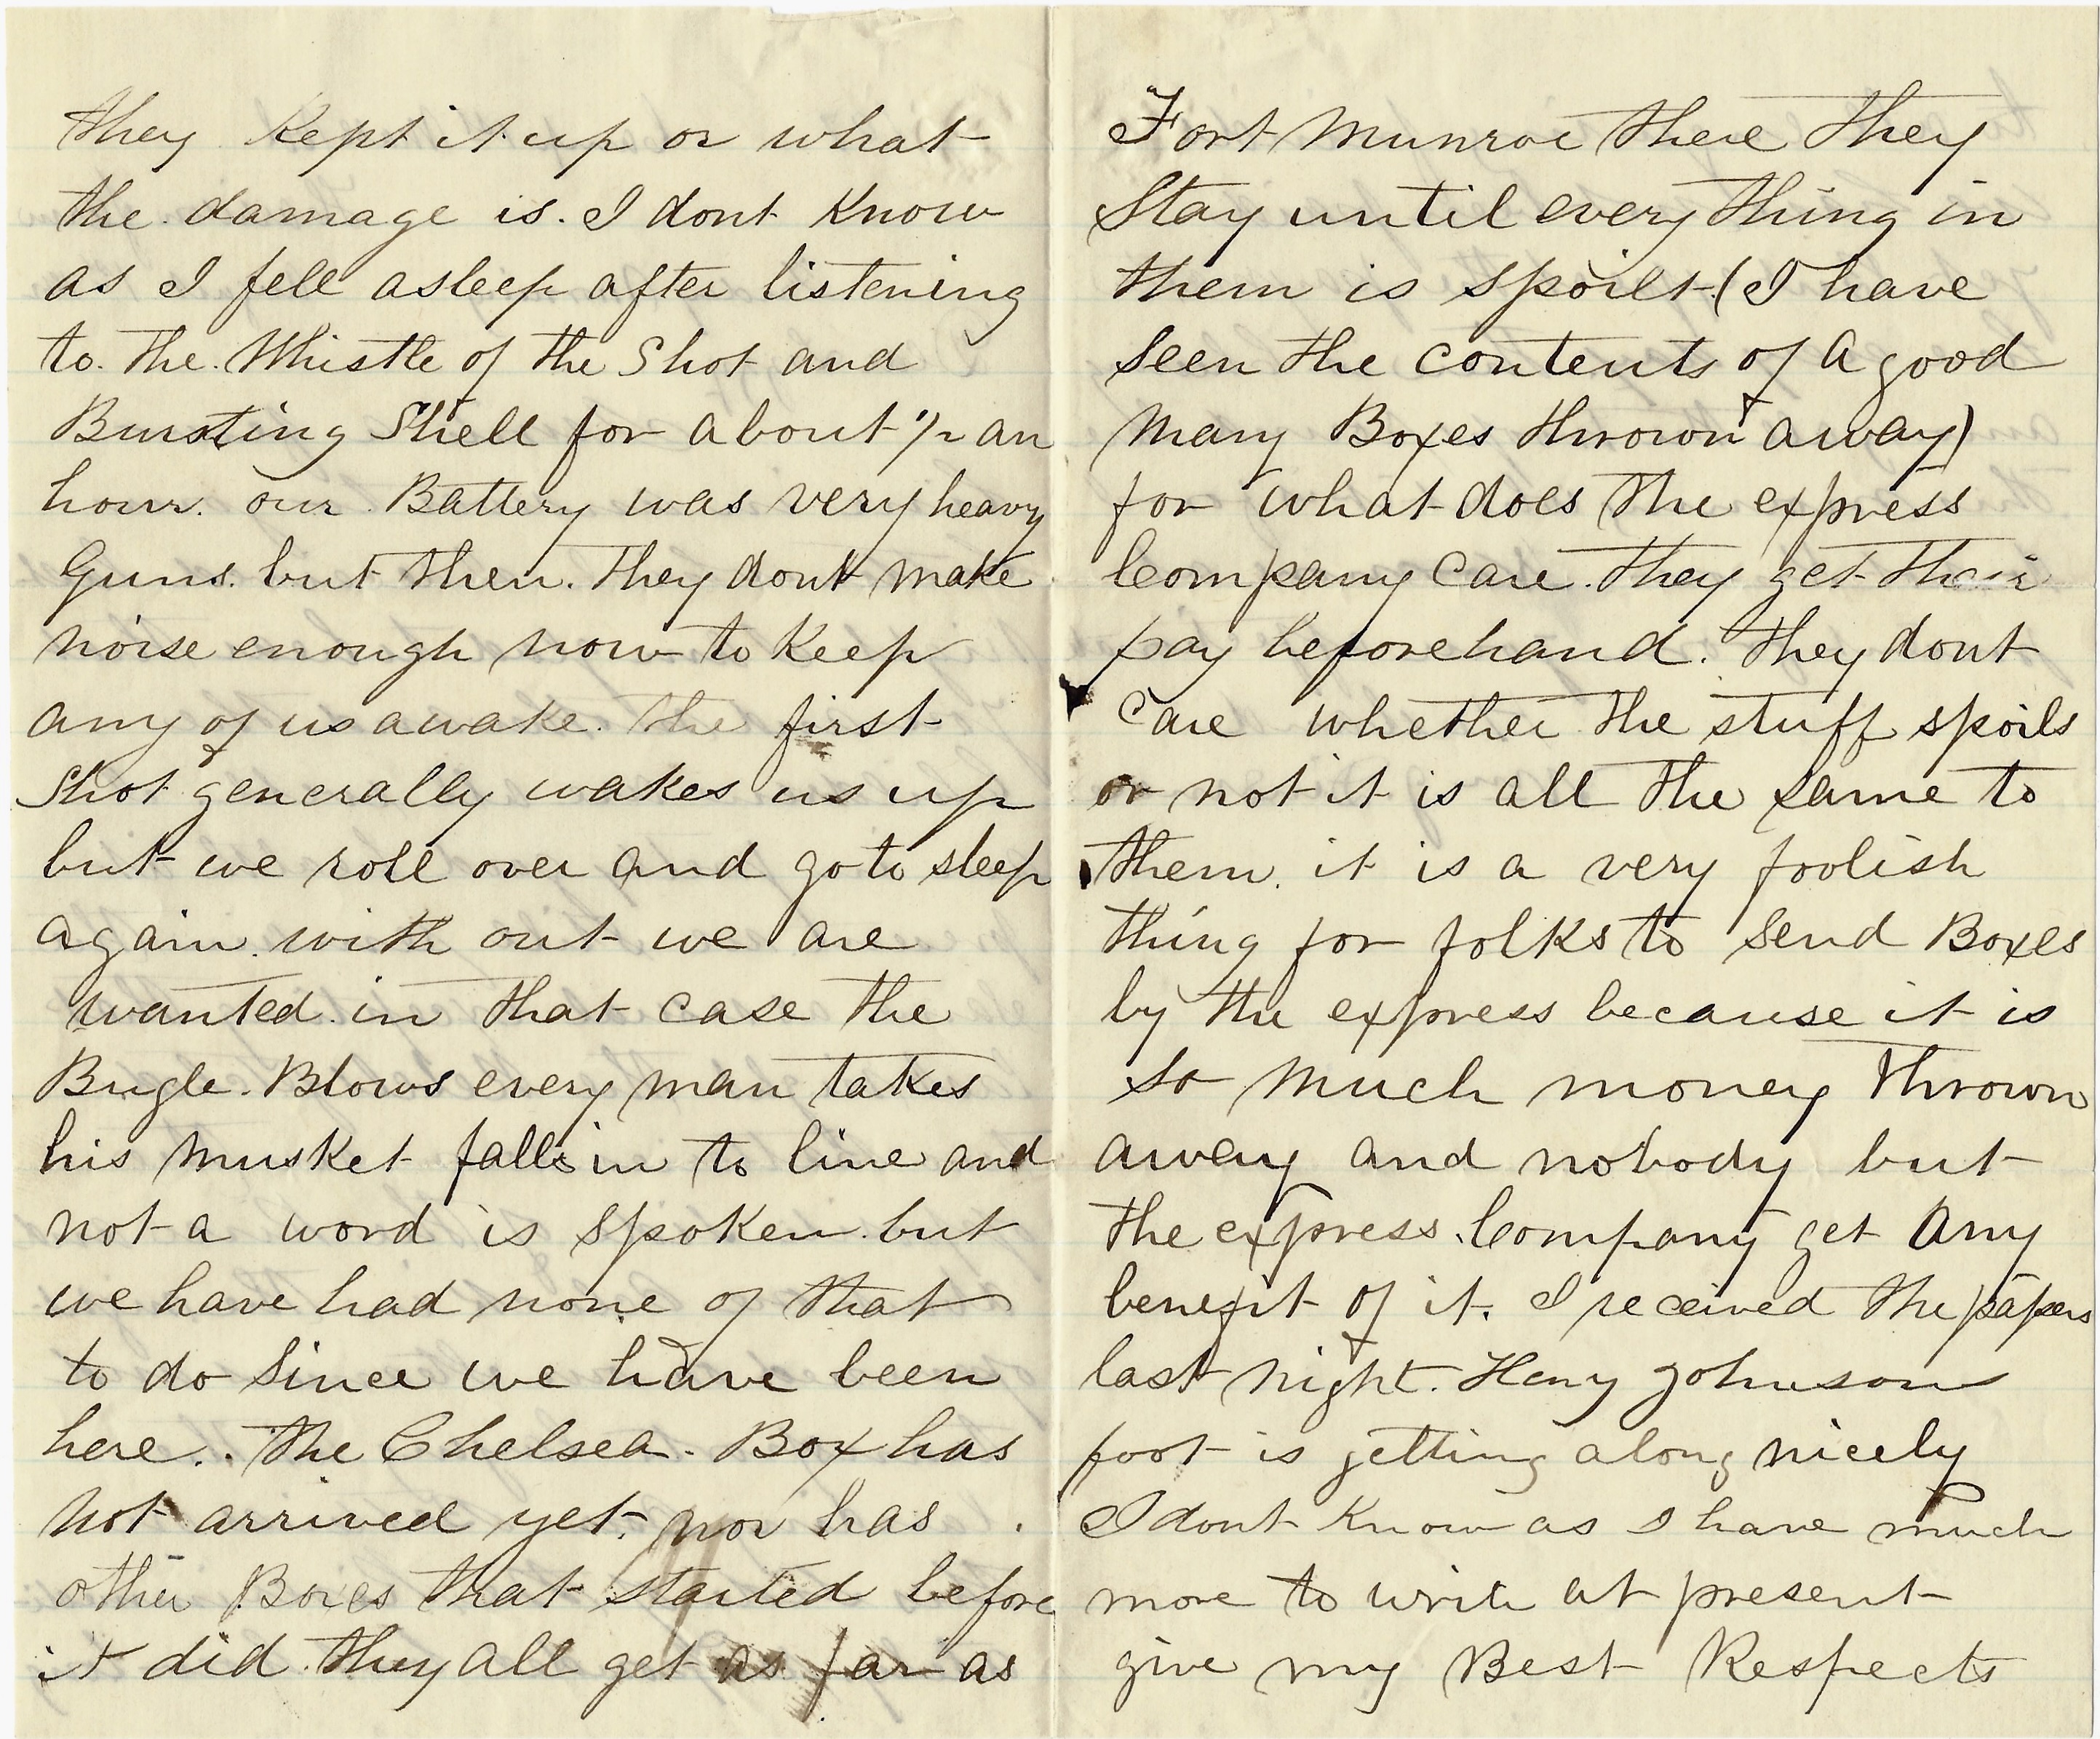 they Kept it up or what
the damage is. I dont Know
as I fell asleep after listening
to. the. Whistle of the Shot and
Bursting Shell for about 1/2 an
hour. our Battery was very heavy
Guns. but then. they dont make
noise enough now to Keep
any of us awake. the first
Shot generally wakes us up
but we roll over and go to sleep
again. with out we are
wanted. in that case the
Bugle. Blows every man takes
his musket falls in to line and
not a word is spoken. but
we have had none of that
to do since we have been
here.. the Chelsea. Box has
not arrived yet. nor has
other Boxes that started before
it did. they all get as far as
Fort Munroe there they
Stay until every thing in
them is spoilt (I have
seen the contents of a good
many Boxes thrown away)
for what does the express
Company care. they get their
pay beforehand. they dont
care whether the stuff spoils
or not it is all the same to
them. it is a very foolish
thing for folks to send Boxes
by the express because it is
so much money thrown
away and nobody but
the express. Company get any
benefit of it. I received the papers
last night. Heny Johnson
foot is getting along nicely
I dont Know as I have much
more to write at present
give my Best Respects